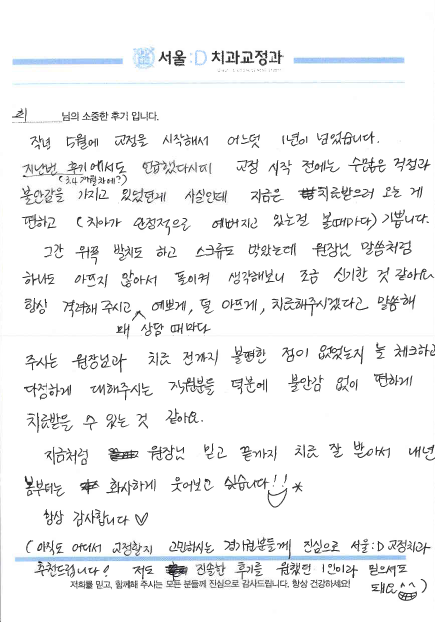 서울:D 치과교정과
최 님의 소중한 후기 입니다.
작년 5월에 교정을 시작해서 어느덧 1년이 넘었습니다.
지난번 후기에서도 언급했다시피 교정 시작 전에는 수많은 걱정과
(3,4개월차에?)
불안감을 가지고 있었던게 사실인데 지금은 치료받으러 오는 게
편하고 (치아가 안정적으로 예뻐지고 있는걸 볼때마다) 기쁩니다.
그간 위쪽 발치도 하고 스크류도 박았는데 원장님 말씀처럼
하나도 아프지 않아서 돌이켜 생각해보니 조금 신기한 것 같아요
항상 격려해 주시고 예쁘게, 덜 아프게, 치료해주시겠다고 말씀해
매 상담 때마다
주시는 원장님과 치료 전까지 불편한 점이 없었는지 늘 체크하고
다정하게 대해주시는 직원분들 덕분에 불안감 없이 편하게
치료받을 수 있는 것 같아요.
지금처럼 원장님 믿고 끝까지 치료 잘 받아서 내년
봄부터는 화사하게 웃어보고 싶습니다!!
항상 감사합니다 ♡
(아직도 어디서 교정할지 고민하시는 분들께 진심으로 서울:D 교정치과
추천드립니다! 저도 진솔한 후기를 원했던 1인이라 믿으셔도
돼요^^)
저희를 믿고, 함께해 주시는 모든 분들께 진심으로 감사드립니다. 항상 건강하세요!